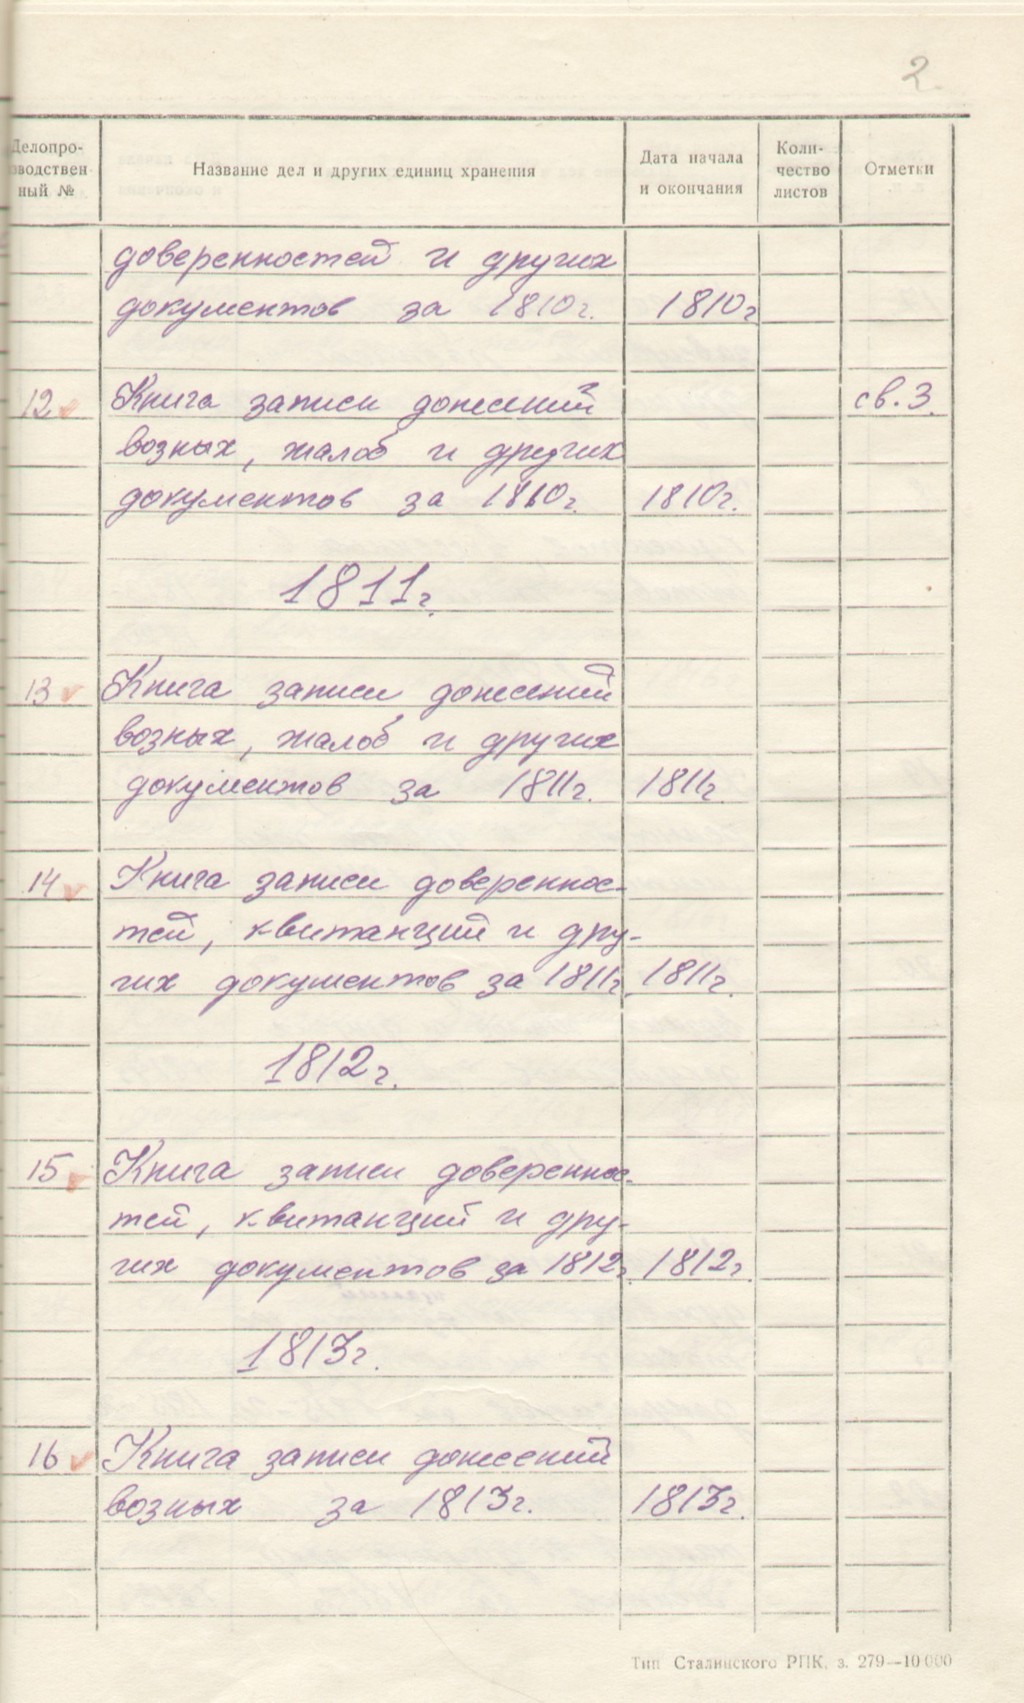 2.
Делопро-
зводствен
ный №
Название дел и других единиц хранения
Дата начала
и окончания
Коли-
чество
листов
Отметки
доверенностей и других
документов за 1810г. 1810г
12 Книга записи донесений св. 3.
возных, жалоб и других
документов за 1810г. 1810г.
1811г.
13 Книга записи донесений
возных, жалоб и других
документов за 1811г. 1811г.
14 Книга записи довереннос-
тей, квитанций и дру-
гих документов за 1811г. 1811г.
1812г.
15 Книга записи довереннос-
тей, квитанций и дру-
гих документов за 1812г. 1812г.
1813г.
16 Книга записи донесений
возных за 1813г. 1813г.
Тип Сталинского РПК, з. 279—10 000